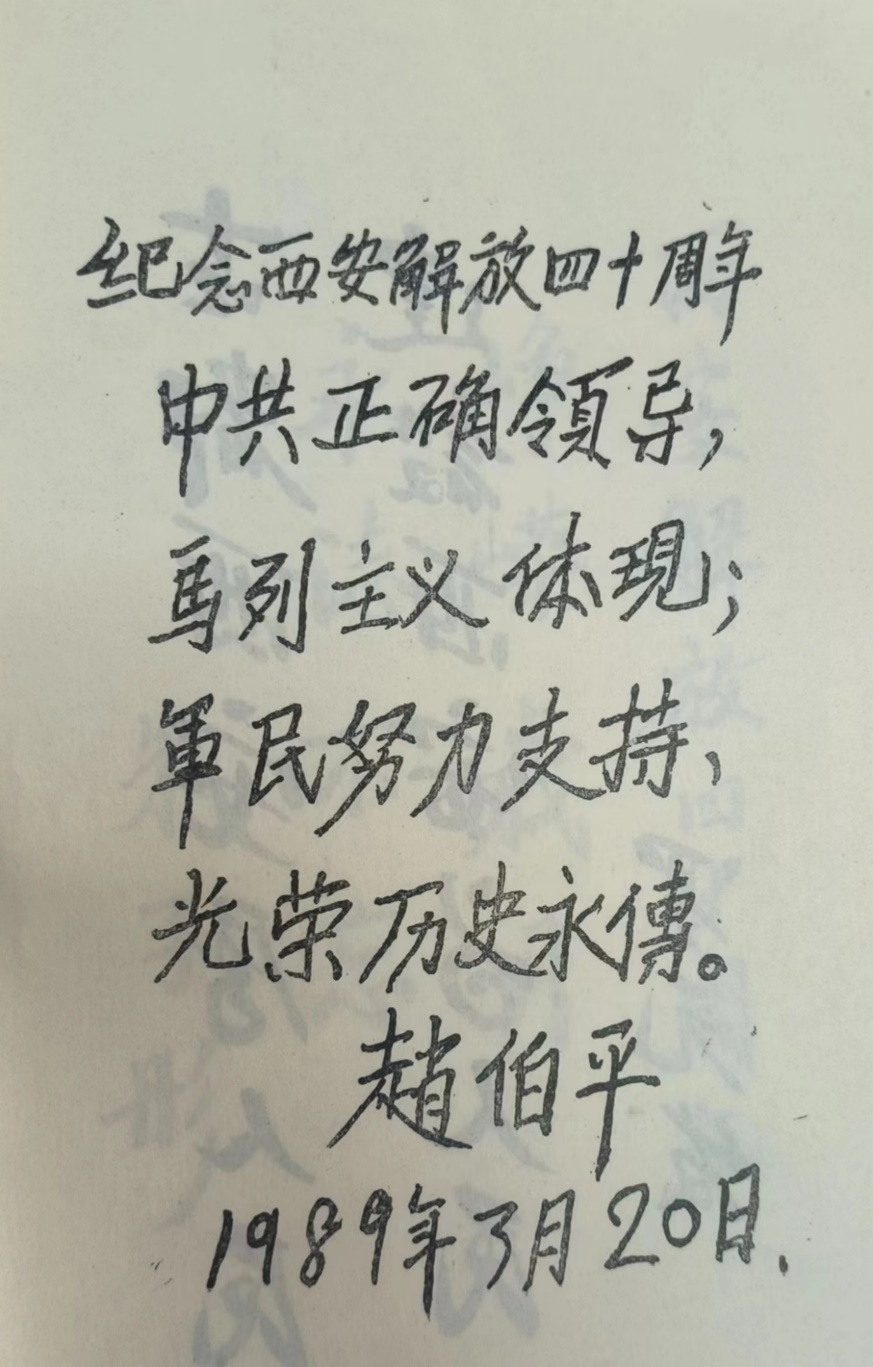 纪念西安解放四十周年
中共正确領导，
馬列主义体現；
軍民努力支持、
光荣历史永傳。
趙伯平
1989年3月20日.